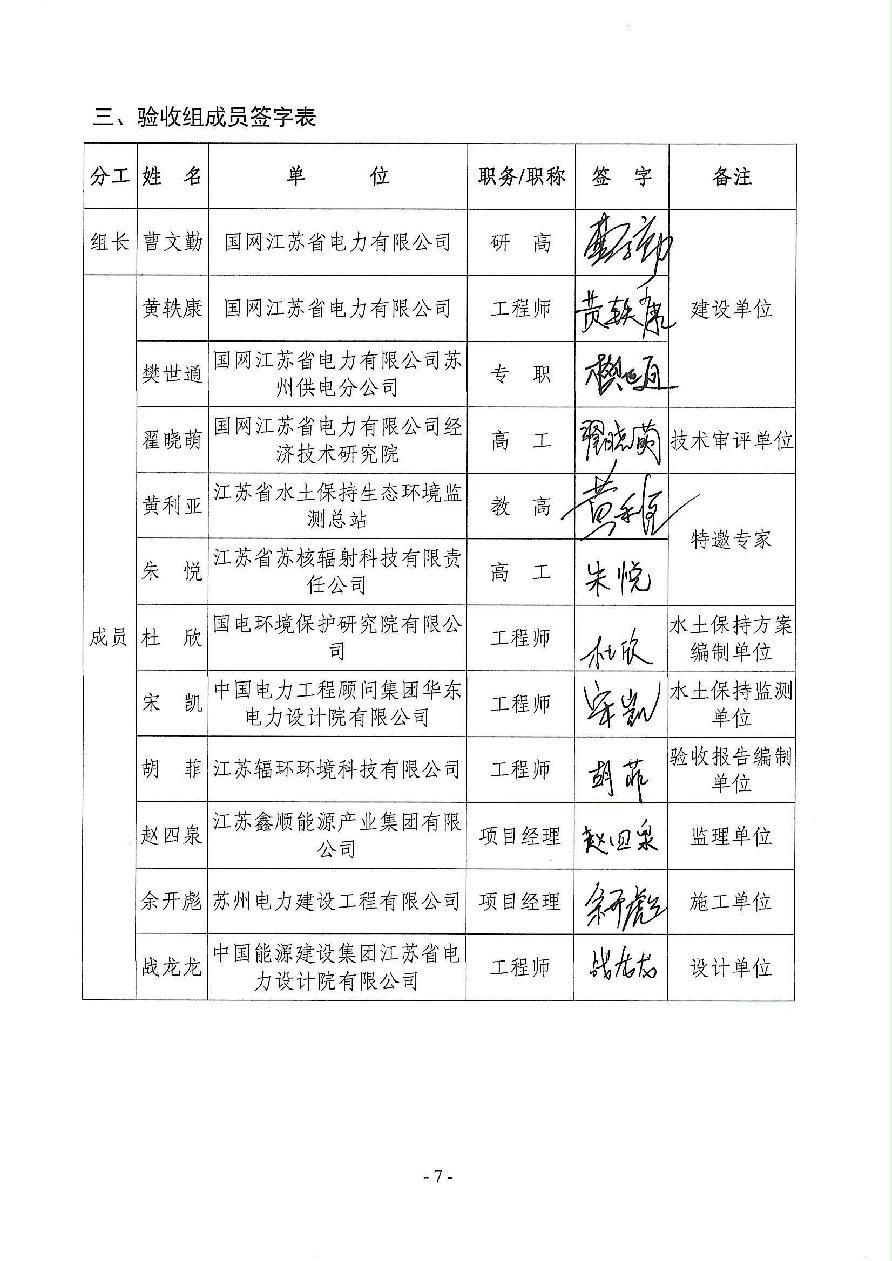 三、验收组成员签字表
分工 姓 名 单 位 职务/职称 签 字 备注
组长 曹文勤 国网江苏省电力有限公司 研 高 曹文勤
黄轶康 国网江苏省电力有限公司 工程师 黄轶康 建设单位
樊世通 国网江苏省电力有限公司苏
州供电分公司 专 职 樊世通
翟晓萌 国网江苏省电力有限公司经
济技术研究院 高 工 翟晓萌 技术审评单位
黄利亚 江苏省水土保持生态环境监
测总站 教 高 黄利亚
特邀专家
朱 悦 江苏省苏核辐射科技有限责
任公司 高 工 朱悦
成员 杜 欣 国电环境保护研究院有限公
司 工程师 杜欣 水土保持方案
编制单位
宋 凯 中国电力工程顾问集团华东
电力设计院有限公司 工程师 宋凯 水土保持监测
单位
胡 菲 江苏辐环环境科技有限公司 工程师 胡菲 验收报告编制
单位
赵四泉 江苏鑫顺能源产业集团有限
公司 项目经理 赵四泉 监理单位
余开彪 苏州电力建设工程有限公司 项目经理 余开彪 施工单位
战龙龙 中国能源建设集团江苏省电
力设计院有限公司 工程师 战龙龙 设计单位
- 7 -